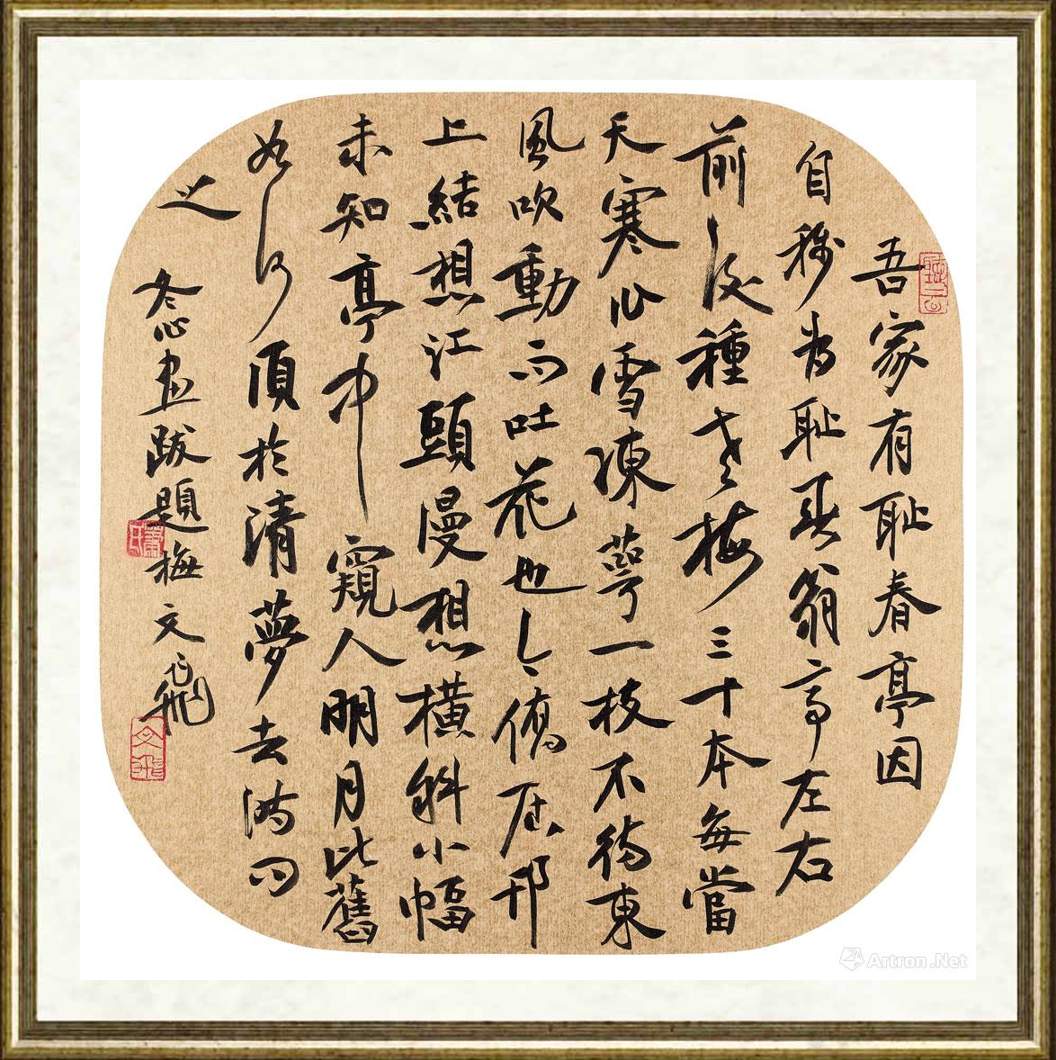 吾家有耻春亭因
自稱為耻春翁亭左右
前後種老梅三十本每當
天寒作雪凍萼一枝不待東
風吹動而吐花也今僑居邗
上結想江頭漫想橫斜小幅
未知亭中窺人明月比舊
如何須於清夢去時問
之
冬心畫跋題梅 文飛
Artron.Net